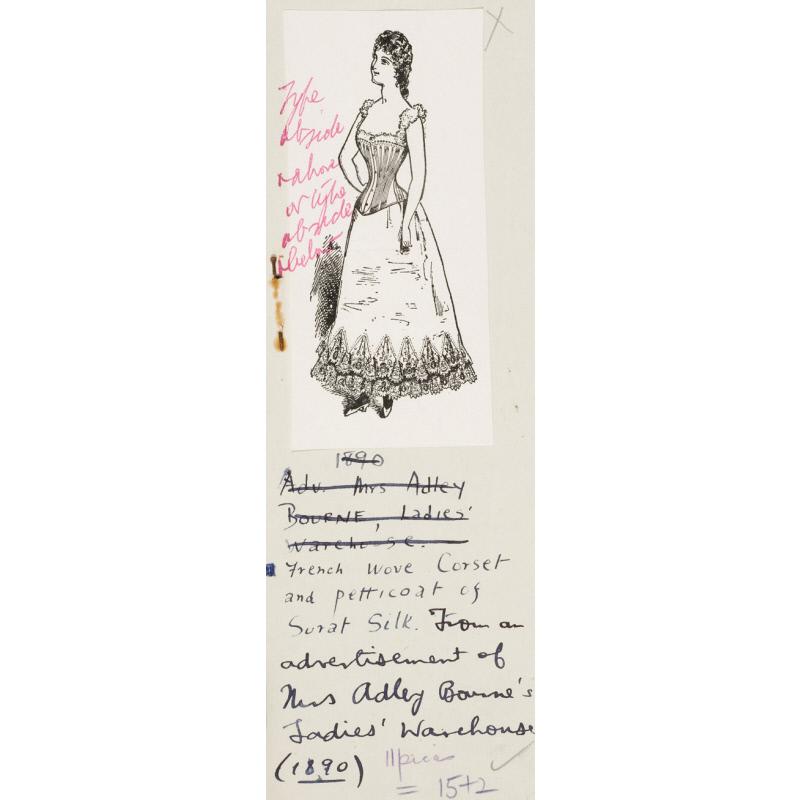 Type
abside
above
or type
abside
below
1890
Adv. Mrs Adley
BOURNE, Ladies'
Warehouse.
French wove Corset
and petticoat of
Surat Silk. From an
advertisement of
Mrs Adley Bourne's
Ladies' Warehouse
(1890)
= 15+2